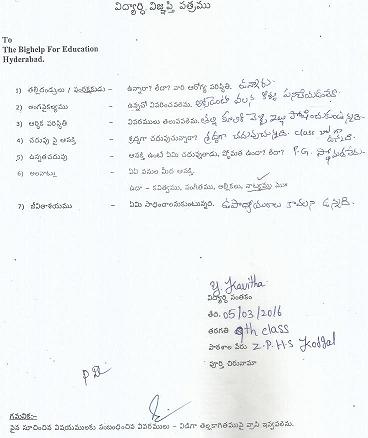 విద్యార్థి విజ్ఞప్తి పత్రము
To
The Bighelp For Education
Hyderabad.
1) తల్లిదండ్రులు / సంరక్షకుడు - ఉన్నారా? లేదా? వారి ఆరోగ్య పరిస్థితి. ఉన్నారు.
2) అంగవైకల్యము - ఉన్నచో వివరించవలెను.
3) ఆర్థిక పరిస్థితి - వివరములు తెలుపవలెను. తల్లి కూలికి వెళ్ళి
4) చదువు పై ఆసక్తి - శ్రద్ధగా చదువుచున్నారా? శ్రద్ధగా చదువుచున్నది. class
5) ఉన్నతచదువు - ఆసక్తి ఉంటే ఏమి చదువుతాడు, స్తోమత ఉందా? లేదా? P.G.
6) అలవాట్లు - ఏఏ పనుల మీద ఆసక్తి.
ఉదా - కవిత్వము, సంగీతము, అల్లికలు, నాట్యము మొ
7) జీవితాశయము - ఏమి సాధించాలనుకుంటున్నది. ఉపాధ్యాయురాలు కావాలని ఉన్నది.
Y. Kavitha
విద్యార్థి సంతకం
తేది. 05/03/2016
తరగతి 9th class
పాఠశాల పేరు Z.P.H.S Kodgal
పూర్తి చిరునామా
గమనిక:-
పైన సూచించిన విషయములకు సంబంధించిన వివరములు - విడిగా తెల్లకాగితముపై వ్రాసి ఇవ్వవలెను.